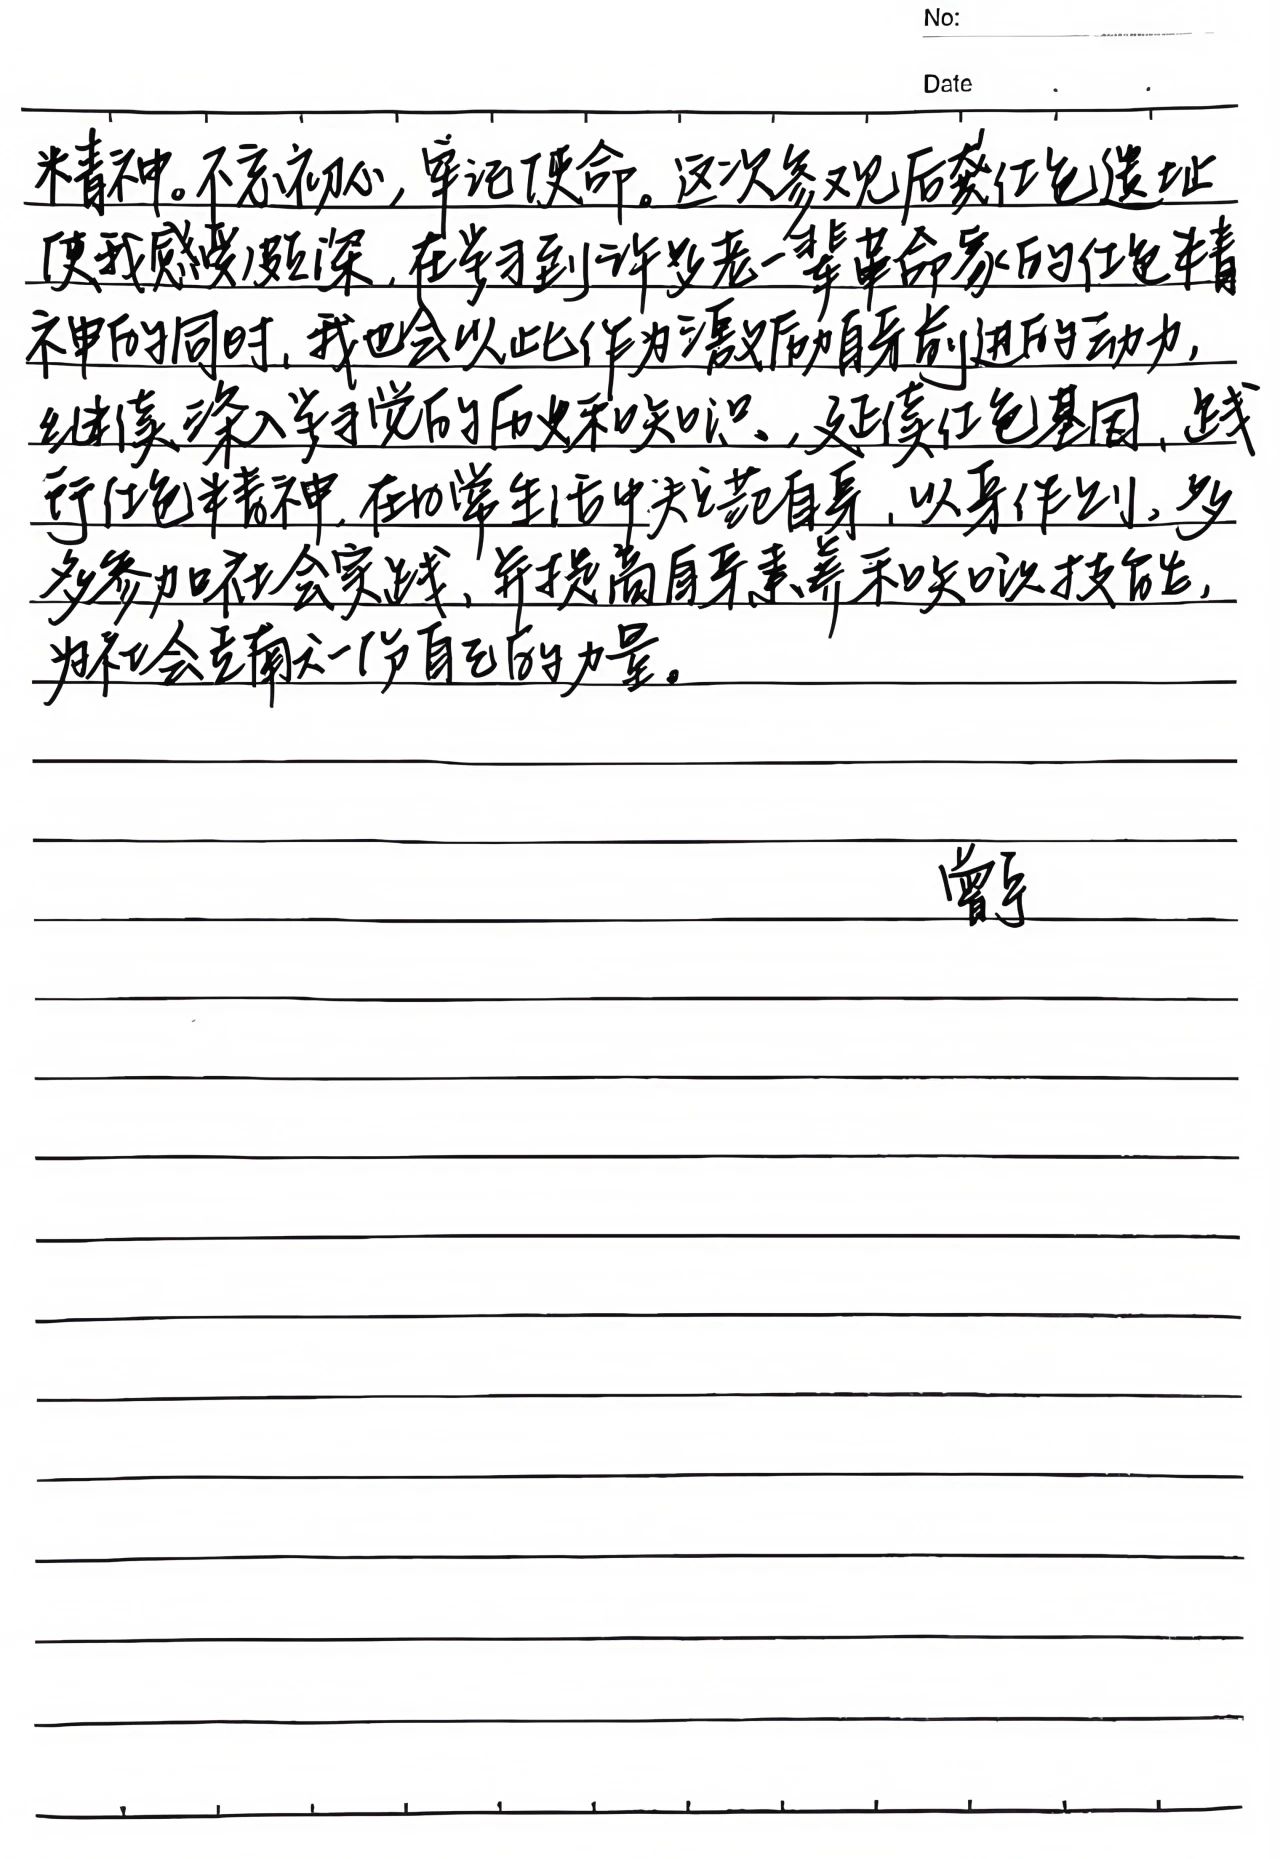 No:
Date
精神。不忘初心，牢记使命。这次参观后龚红色遗址
使我感受颇深，在学习到许多老一辈革命家的红色精
神的同时，我也会以此作为激励自身前进的动力，
继续深入学习党的历史和知识、，延续红色基因，践
行红色精神，在日常生活中规范自身，以身作则，多
多参加社会实践，并提高自身素养和知识技能，
为社会贡献一份自己的力量。